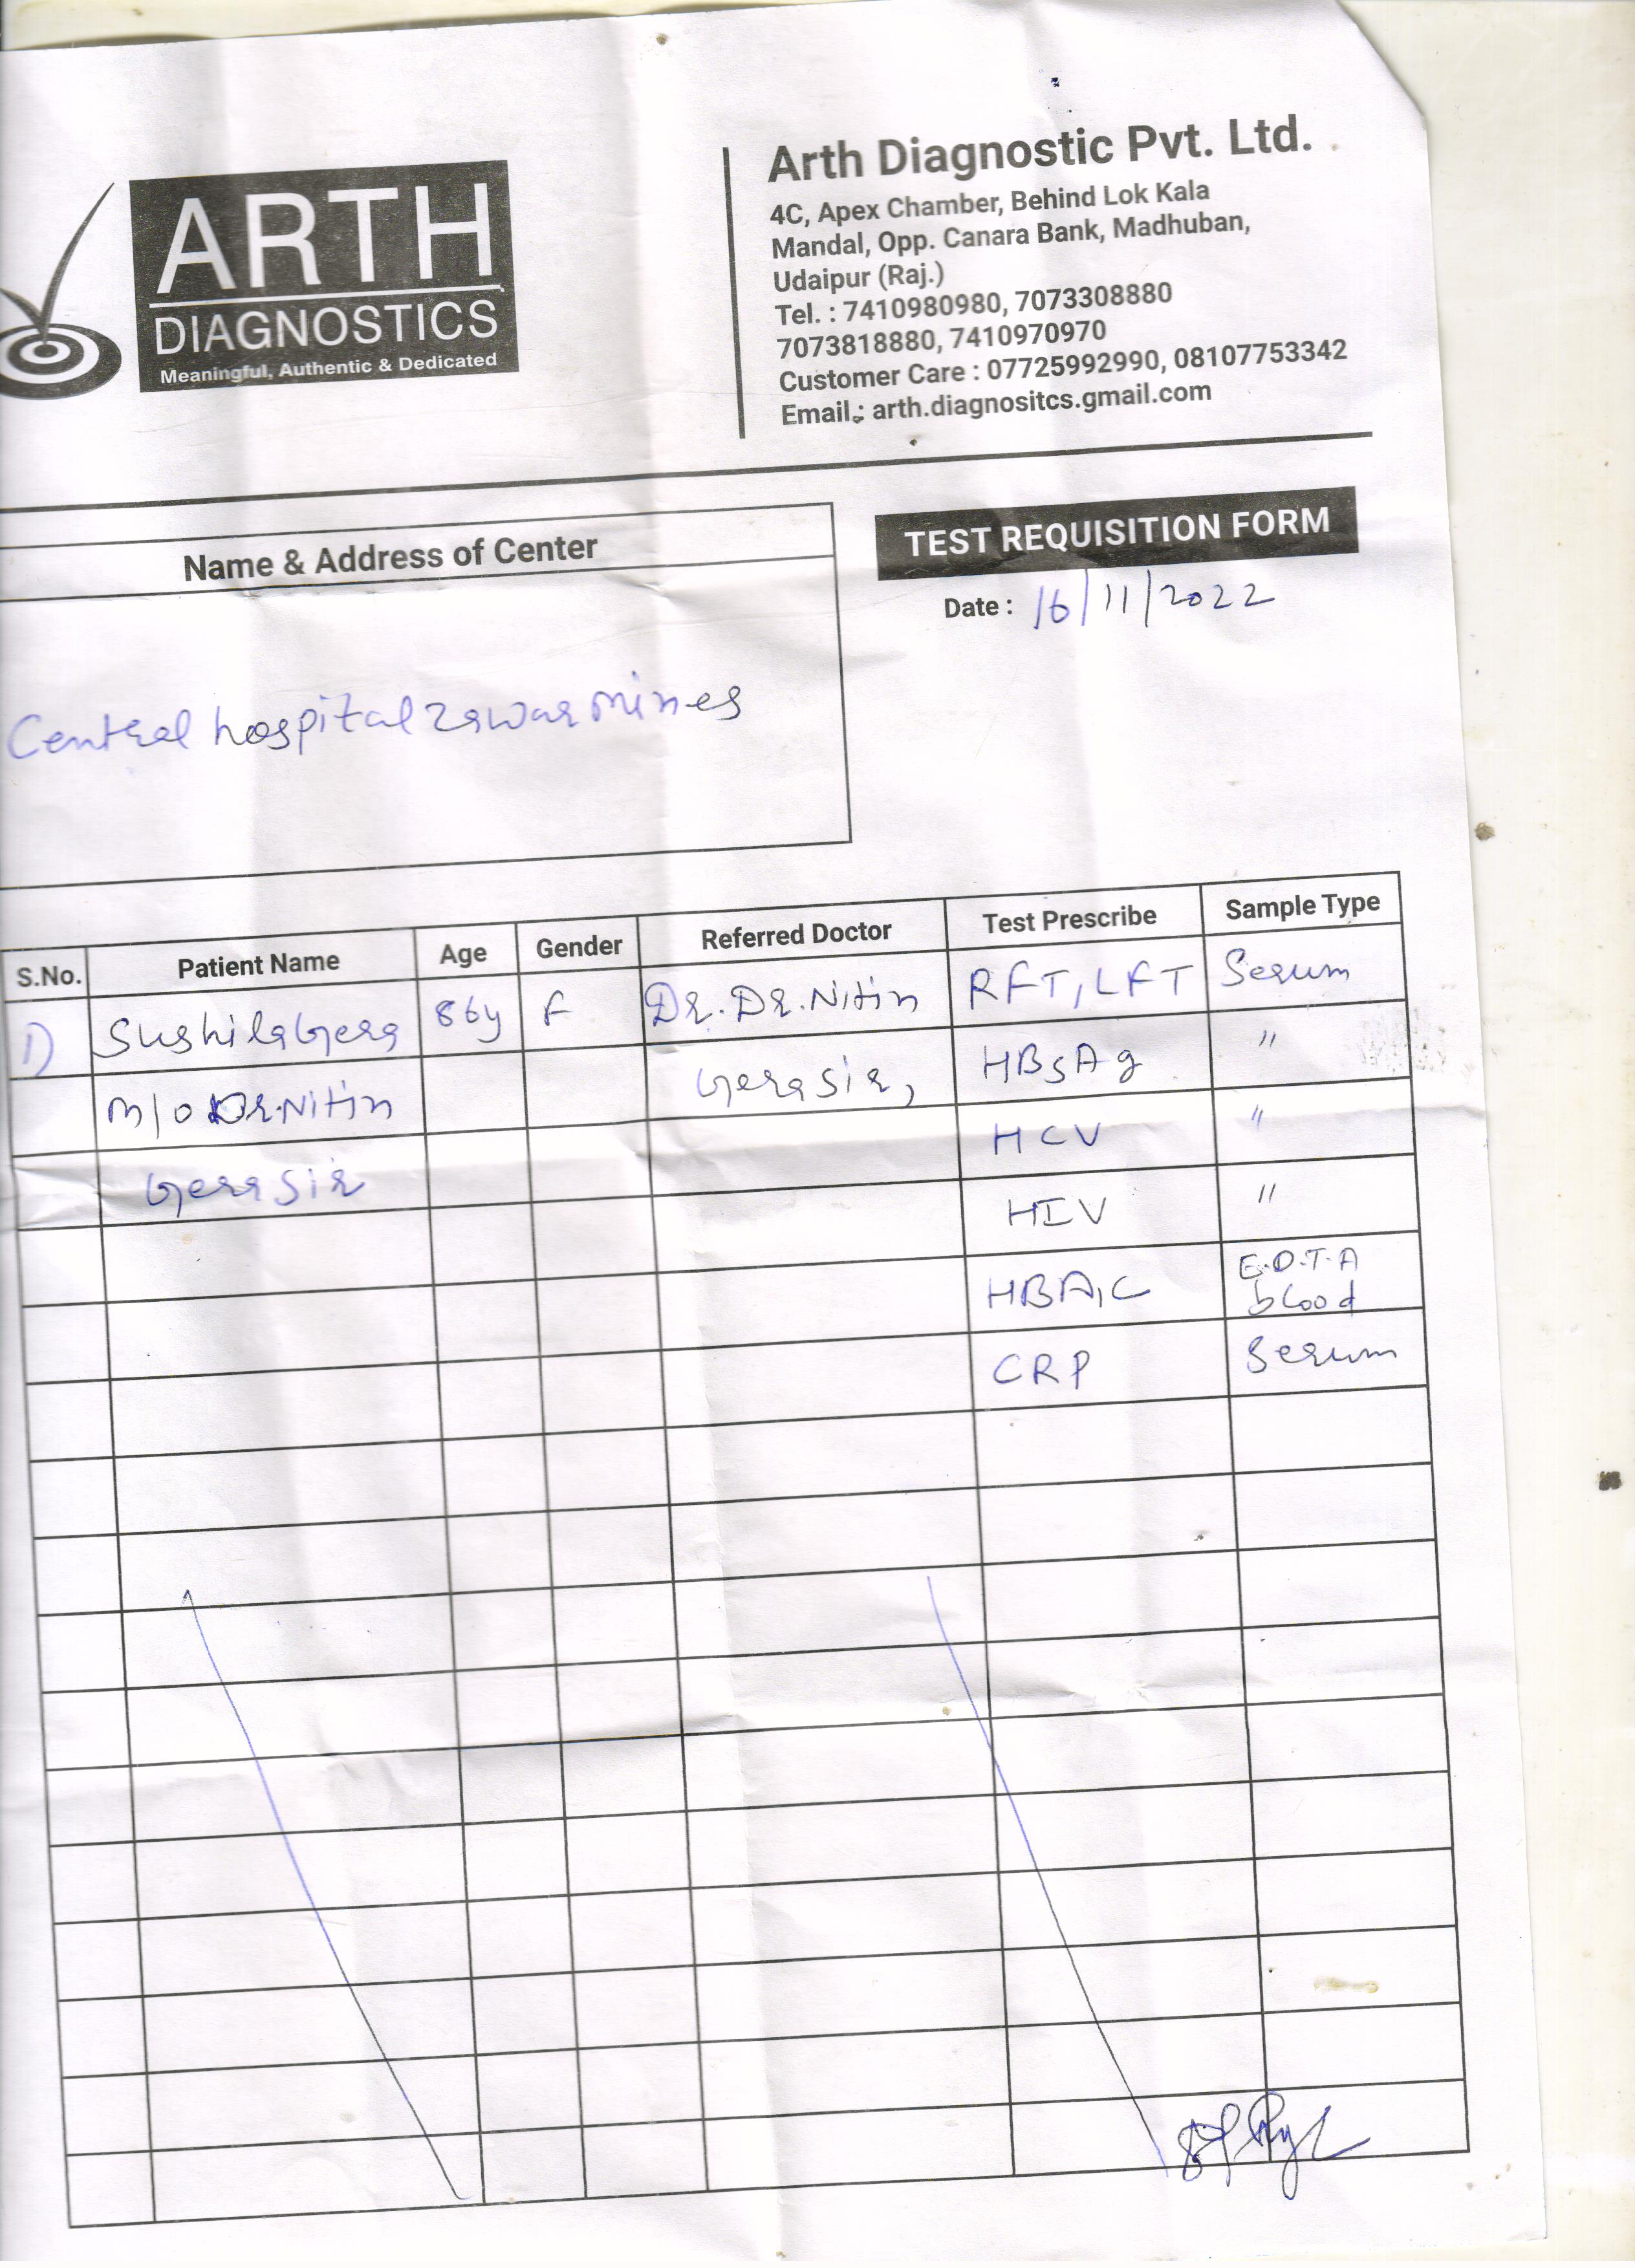 ARTH
DIAGNOSTICS
Meaningful, Authentic & Dedicated
Arth Diagnostic Pvt. Ltd.
4C, Apex Chamber, Behind Lok Kala
Mandal, Opp. Canara Bank, Madhuban,
Udaipur (Raj.)
Tel. : 7410980980, 7073308880
7073818880, 7410970970
Customer Care : 07725992990, 08107753342
Email.: arth.diagnositcs.gmail.com
Name & Address of Center
TEST REQUISITION FORM
Date : 16/11/2022
Central hospital zawar mines
S.No. Patient Name Age Gender Referred Doctor Test Prescribe Sample Type
1) Sushila Gera 86y F Dr. Dr. Nitin RFT, LFT Serum
m/o Dr. Nitin Gera Sir, HBsAg "
Gera Sir HCV "
HIV "
HBA1C E.D.T.A blood
CRP Serum